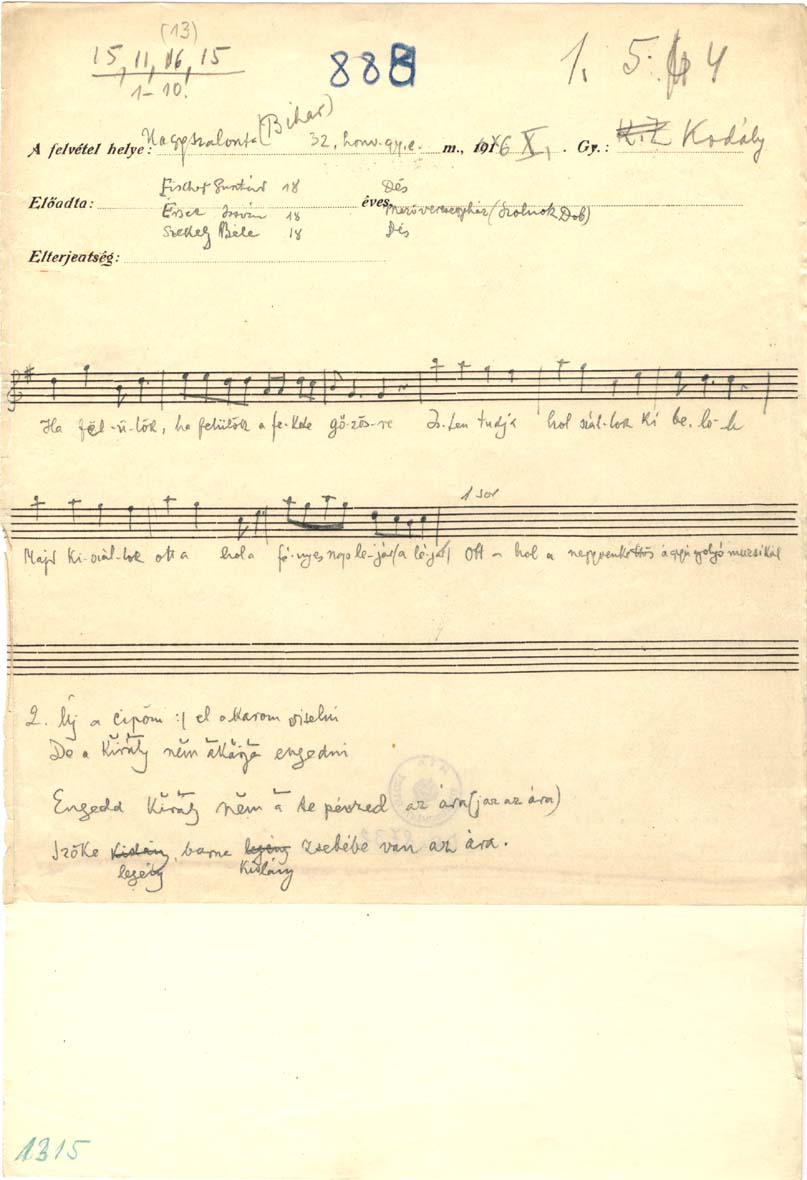 (13)
15, 11, 16, 15
1-10!
888
1. 5. 4
A felvétel helye: Nagyszalonta (Bihar) 32. honv. gy. e. m., 1916 X. Gy.: K. Z Kodály
18 Dés
Előadta: István 18 éves, (Szolnok Dob)
Székely Béla 18 Dés
Elterjeatség:
Ha fël-ü-lök, ha felülök a fe-kete gő-zös-re Is-ten tudja hol szál-lok ki be-lő-le
1 sor
Majd ki-szál-lok ott a hol a fé-nyes nap le-jár (a lë-jár) Ott a hol a negyvenkettős ágyúgolyó muzsikál
2. Új a cipőm :| el akarom viselni
De a Király nëm akarja engedni
Engedd Király nëm a te pénzed az ára (jaz az ára)
Szőke kislány, barna legény zsebébe van az ára.
legény kislány
1315